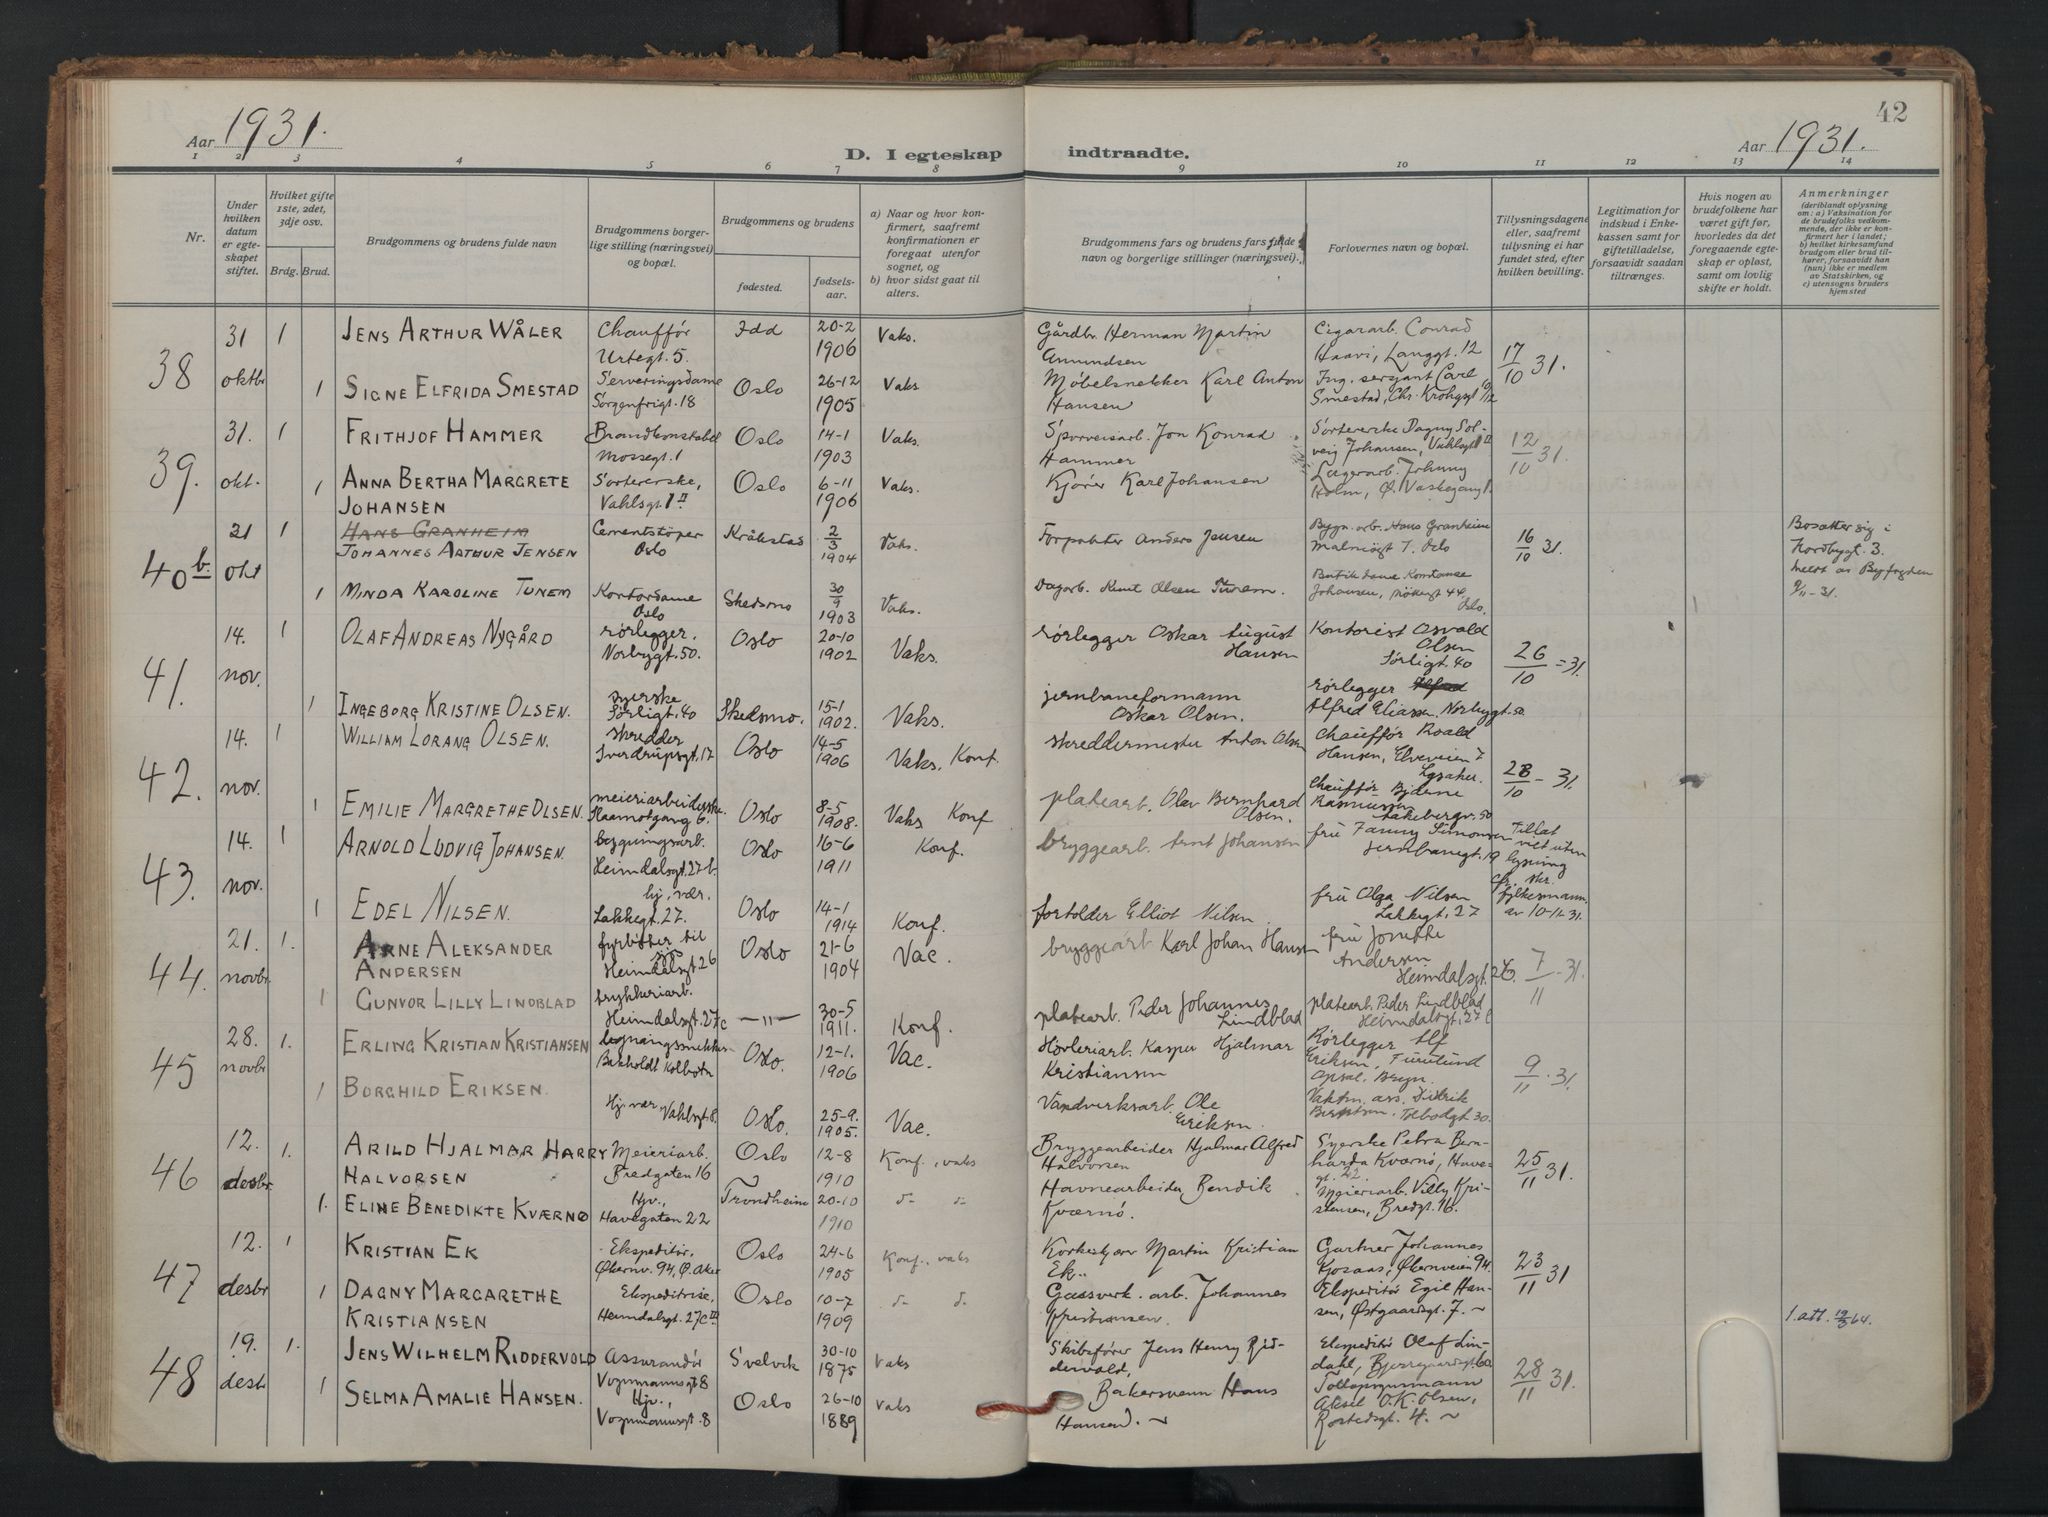 42
Aar 1931.
D. I egteskap indtraadte.
Aar 1931.
1 2 3 4 5 6 7 8 9 10 11 12 13 14
Nr.
Under hvilken datum er egteskapet stiftet.
Hvilket gifte 1ste, 2det, 3dje osv.
Brdg. Brud.
Brudgommens og brudens fulde navn
Brudgommens borgerlige stilling (næringsvei) og bopæl.
Brudgommens og brudens
fødested.
fødselsaar.
a) Naar og hvor konfirmert, saafremt konfirmationen er foregaat utenfor sognet, og
b) hvor sidst gaat til alters.
Brudgommens fars og brudens fars fulde navn og borgerlige stillinger (næringsvei).
Forlovernes navn og bopæl.
Tillysningsdagene eller, saafremt tillysning ei har fundet sted, efter hvilken bevilling.
Legitimation for indskud i Enkekassen samt for giftetilladelse, forsaavidt saadan tiltrænges.
Hvis nogen av brudefolkene har været gift før, hvorledes da det foregaaende egteskap er opløst, samt om lovlig skifte er holdt.
Anmerkninger
(deriblandt oplysning om: a) Vaksination for de brudefolks vedkommende, der ikke er konfirmert her i landet; b) hvilket kirkesamfund brudgom eller brud tilhører, forsaavidt han (hun) ikke er medlem av Statskirken, og c) utensogns bruders hjemsted
38 31 oktbr 1 JENS ARTHUR WÅLER Chauffør Urtegt. 5. Idd 20-2 1906 Vaks. Gårdbr. Herman Martin Amundsen Cigararb. Conrad Haavi, Langgt. 12 17/10 31.
1 SIGNE ELFRIDA SMESTAD Serveringsdame Sorgenfrigt. 18 Oslo 26-12 1905 Vaks Møbelsnekker Karl Anton Hansen Ing. sergant Carl Smestad, Chr. Krohgsgt
39. 31. okt. 1 FRITHJOF HAMMER Brandkonstabel Mossegt. 1 Oslo 14-1 1903 Vaks. Sporveisarb. Jon Konrad Hammer Sorterske Dagny Solveig Johansen, Vahlsgt 1 II 12/10 31.
1 ANNA BERTHA MARGRETE JOHANSEN Sortererske, Vahlsgt. 1 II Oslo 6-11 1906 Vaks. Kjører Karl Johansen Lagerarb. Johnny Holm, Ø. Vaskegang 1.
40 b. 21 okt 1 HANS GRANHEIM
JOHANNES ARTHUR JENSEN Cementstøper Oslo Kråkstad 2/3 1904 Vaks. Forpakter Anders Jensen Bygn. arb. Hans Granheim Malmøgt 7. Oslo 16/10 31. Bosatter sig i Nordbygt. 3. Meldt av Byfogden 9/11-31.
1 MINDA KAROLINE TUNEM Kontordame Oslo Skedsmo 30/9 1903 Vaks. Dagarb. Knut Olsen Tunem. Butikdame Konstanse Johansen, 44 Oslo.
41. 14. nov. 1 OLAF ANDREAS NYGÅRD rørlegger. Norbygt. 50. Oslo 20-10 1902 Vaks. rørlegger Oskar August Hansen Kontorist Osvald Olsen Sørligt. 40 26/10 = 31.
1 INGEBORG KRISTINE OLSEN. syerske Sørligt. 40 Skedsmo. 15-1 1902. Vaks. jernbaneformann Oskar Olsen. rørlegger Alfred Alfred Eliassen. Norbygt. 50.
42. 14. nov. 1 WILLIAM LORANG OLSEN. skredder Sverdrupsgt. 17 Oslo 14-5 1906 Vaks. Konf. skreddermester Anton Olsen Chauffør Roald Hansen, Elveveien 7 Lysaker. 28/10 - 31.
1 EMILIE MARGRETHE OLSEN. meieriarbeiderske 6. Oslo 8-5 1908. Vaks Konf platearb. Olav Bernhard Olsen. Chauffør Bjarne Rasmussen Åkebergv. 50
43. 14. nov. 1 ARNOLD LUDVIG JOHANSEN. bygningsarb. Heimdalsgt. 27 b. Oslo 16-6 1911 Konf. bryggearb. Arnt Johansen fru Fanny Simonsen Jernbanegt. 19 Tillat viet uten lysning cfr. skr. fylkesmann. av 10-11 31.
1 EDEL NILSEN. hj. vær. Lakkegt. 27. Oslo 14-1 1914 Konf. forholder Elliot Nilsen. fru Olga Nilsen Lakkegt. 27
44. 21. novbr 1. ARNE ALEKSANDER ANDERSEN fyrbøter til sjøs Heimdalsgt. 26 Oslo 21-6 1904 Vac. bryggearb. Karl Johan Hansen fru Josette Andersen Heimdalsgt. 26. 7/11 - 31.
1 GUNVOR LILLY LINDBLAD trykkeriarb. Heimdalsgt. 27c -"- 30-5 1911. Konf. platearb. Peder Johannes Lindblad platearb. Peder Lindblad Heimdalsgt. 27 c
45 28. novbr 1. ERLING KRISTIAN KRISTIANSEN bygningssnekker Kolbotn Oslo. 12-1. 1906 Vac. Høvleriarb. Kasper Hjalmar Kristiansen Rørlegger Alf Eriksen, Furulund Opsal. Bryn. 9/11 31.
1 BORGHILD ERIKSEN. Hj. vær. Vahlsgt. 8. Oslo. 25-9. 1905. Vac. Vandverksarb. Ole Eriksen. Vaktm. ass. Didrik Berntsen. Tolbodgt 30.
46 12. desbr. 1. ARILD HJALMAR HARRY HALVORSEN Meieriarb. Bredgaten 16 Oslo 12-8 1910 Konf., vaks Bryggearbeider Hjalmar Alfred Halvorsen Syerske Petra Bernharda Kværnø, Havegt. 22 25/11 31.
1. ELINE BENEDIKTE KVÆRNØ Hjv., Havegaten 22 Trondheim 20-10 1910 d- d- Havnearbeider Bendik Kværnø. Meieriarb. Villy Kristensen, Bredgt. 16.
47 12. desbr 1 KRISTIAN EK Ekspeditør, Økernv. 94, Ø. Aker Oslo 24-6 1905 Konf., vaks Korkeskjærer Martin Kristian Ek. Gartner Johannes Kjosaas, Økernveien 94. 23/11 31
1 DAGNY MARGARETHE KRISTIANSEN Ekspeditrise, Heimdalsgt. 27c III Oslo 10-7 1909 d- d- Gassverk. arb. Johannes Kristiansen. Ekspeditør Egil Hansen, Østgaardsgt. 7. ~ 1. att. 19/3 64.
48 19. desbr 1. JENS WILHELM RIDDERVOLD Assurandør Vognmannsgt 8 Svelvik 30-10 1875 vaks Skibsfører Jens Henry Riddervold, Ekspeditør Olaf Lindahl, Bjerregaardsgt. 60. 28/11 31.
1 SELMA AMALIE HANSEN. Hjv., Vognmannsgt. 8 Oslo 26-10 1889 vaks Bakersvenn Hans Hansen. ~ Tollopsynsmann Aksel O. K. Olsen, Rostedsgt. 4. ~